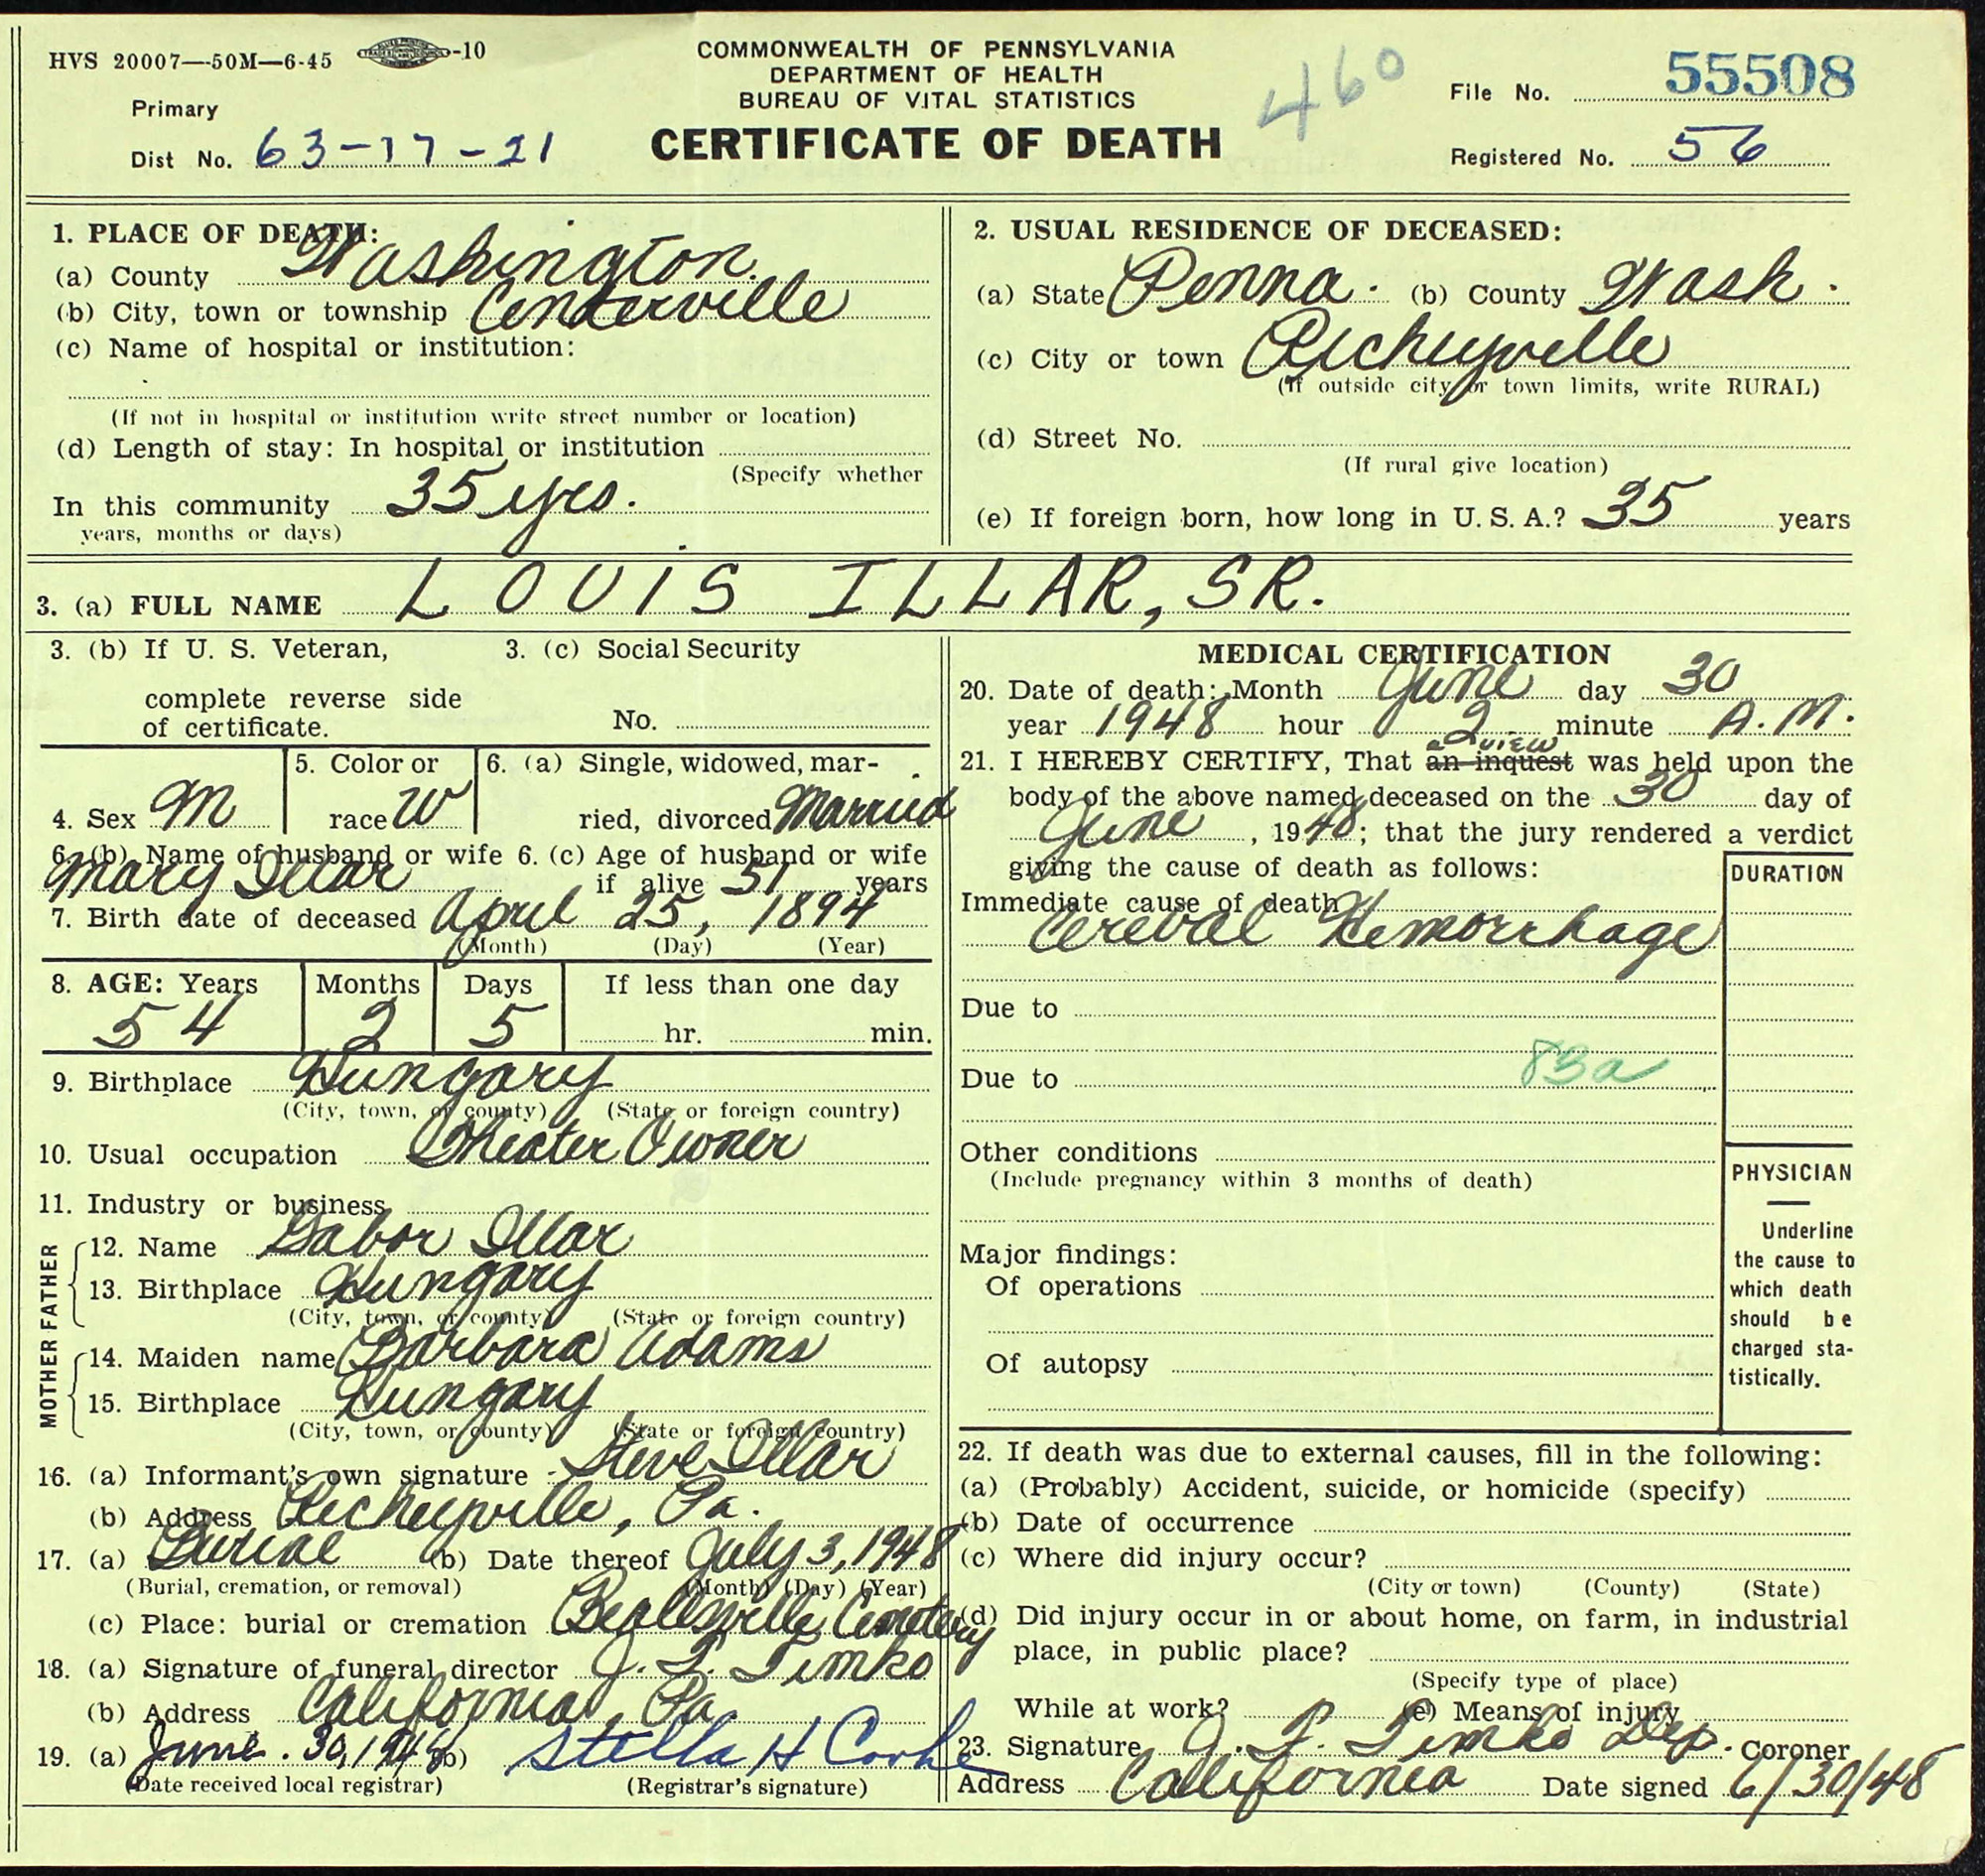 HVS 20007—50M—6-45 -10
COMMONWEALTH OF PENNSYLVANIA
DEPARTMENT OF HEALTH
BUREAU OF VITAL STATISTICS
CERTIFICATE OF DEATH
460
File No. 55508
Registered No. 56
Primary
Dist No. 63-17-21
1. PLACE OF DEATH:
(a) County Washington
(b) City, town or township Centerville
(c) Name of hospital or institution:
(If not in hospital or institution write street number or location)
(d) Length of stay: In hospital or institution
(Specify whether
In this community 35 yrs.
years, months or days)
2. USUAL RESIDENCE OF DECEASED:
(a) State Penna. (b) County Wash.
(c) City or town Richeyville
(If outside city or town limits, write RURAL)
(d) Street No.
(If rural give location)
(e) If foreign born, how long in U.S.A.? 35 years
3. (a) FULL NAME LOUIS ILLAR, SR.
3. (b) If U. S. Veteran,
complete reverse side
of certificate.
3. (c) Social Security
No.
4. Sex M
5. Color or
race W
6. (a) Single, widowed, mar-
ried, divorced Married
6. (b) Name of husband or wife
Mary Illar
6. (c) Age of husband or wife
if alive 51 years
7. Birth date of deceased April 25, 1894
(Month) (Day) (Year)
8. AGE: Years Months Days If less than one day
54 2 5 hr. min.
9. Birthplace Hungary
(City, town, or county) (State or foreign country)
10. Usual occupation Theater Owner
11. Industry or business
FATHER
12. Name Gabor Illar
13. Birthplace Hungary
(City, town, or county) (State or foreign country)
MOTHER
14. Maiden name Barbara Adams
15. Birthplace Hungary
(City, town, or county) (State or foreign country)
16. (a) Informant's own signature Steve Illar
(b) Address Richeyville, Pa.
17. (a) Burial (b) Date thereof July 3, 1948
(Burial, cremation, or removal) (Month) (Day) (Year)
(c) Place: burial or cremation Beallsville Cemetery
18. (a) Signature of funeral director J. P. Timko
(b) Address California, Pa.
19. (a) June. 30, 1948 (b) Stella H
(Date received local registrar) (Registrar's signature)
MEDICAL CERTIFICATION
20. Date of death: Month June day 30
year 1948 hour 2 minute A.M.
a view
21. I HEREBY CERTIFY, That an inquest was held upon the
body of the above named deceased on the 30 day of
June, 1948; that the jury rendered a verdict
giving the cause of death as follows:
DURATION
Immediate cause of death
Cerebal Hemorrhage
Due to
83a
Due to
Other conditions
(Include pregnancy within 3 months of death)
Major findings:
Of operations
Of autopsy
PHYSICIAN
—
Underline
the cause to
which death
should be
charged sta-
tistically.
22. If death was due to external causes, fill in the following:
(a) (Probably) Accident, suicide, or homicide (specify)
(b) Date of occurrence
(c) Where did injury occur?
(City or town) (County) (State)
(d) Did injury occur in or about home, on farm, in industrial
place, in public place?
(Specify type of place)
While at work? (e) Means of injury
23. Signature J. P. Timko Dep. Coroner
Address California Date signed 6/30/48